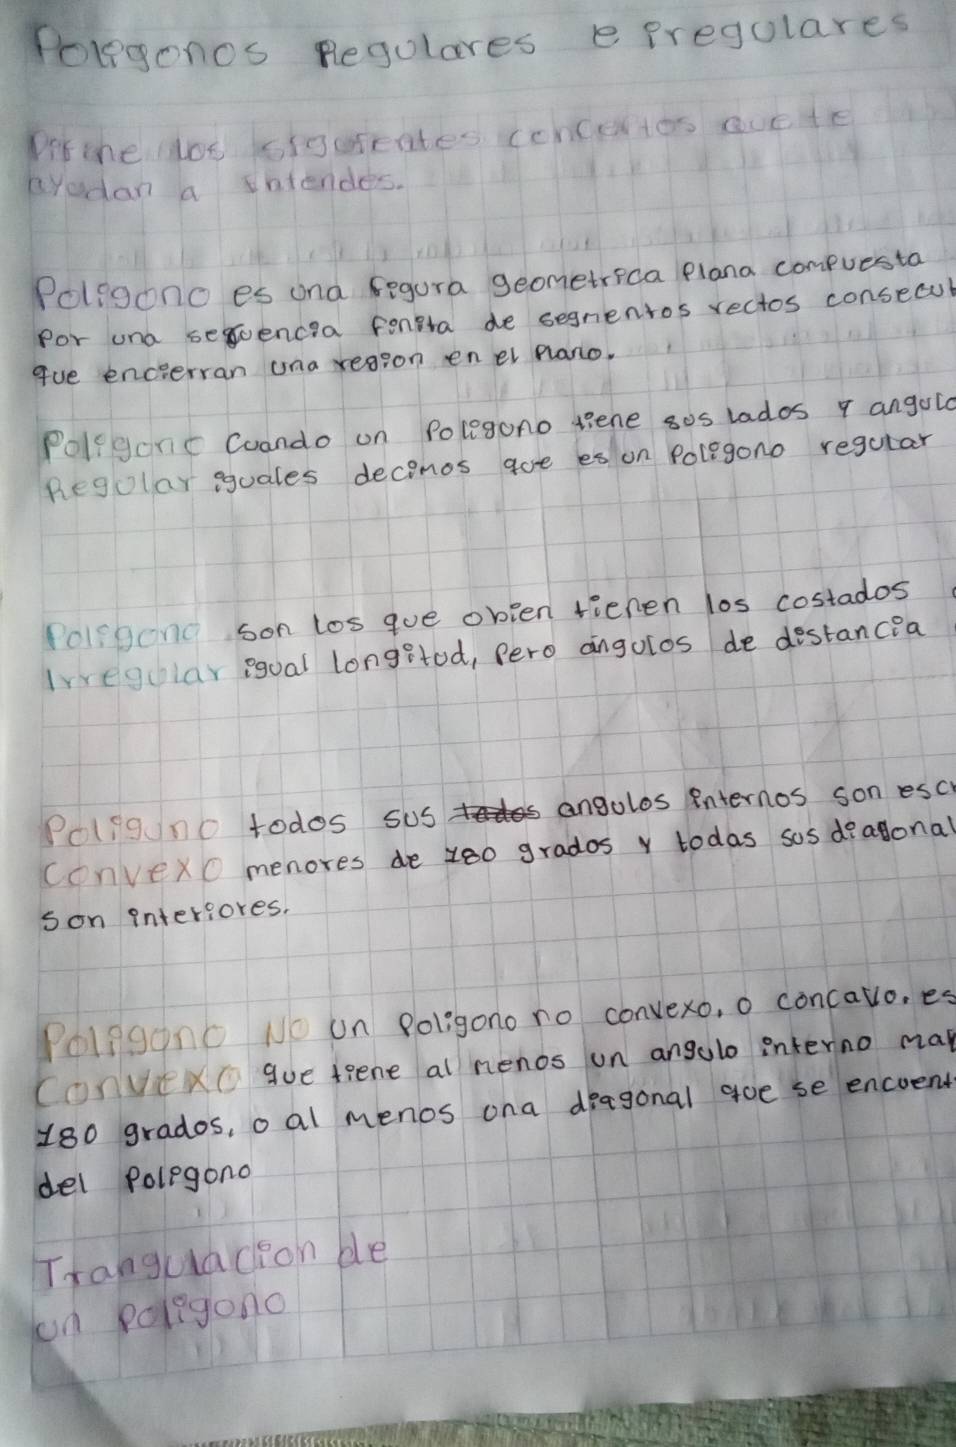 Poligonos Regulares e irregulares
Difine los siguientes concertos que te
ayudan a intendes.
Poligono es una figura geometrica plana compuesta
por una secuencia finita de segmentos rectos consecut
que encierran una region en el plano.
Poligono Cuando un Poligono tiene sus lados y angulo
Regular iguales decimos que es un poligono regular
Poligono son los que obien tienen los costados
Irregular igual longitud, pero angulos de distancia
Poligono todos sus todos angulos internos son escr
convexo menores de 180 grados y todas sus diagonal
son interiores.
Poligono No un poligono no convexo, o concavo, es
Convexo que tiene al menos un angulo interno may
180 grados, o al menos una diagonal que se encuent
del Poligono
Trangulacion de
un poligono